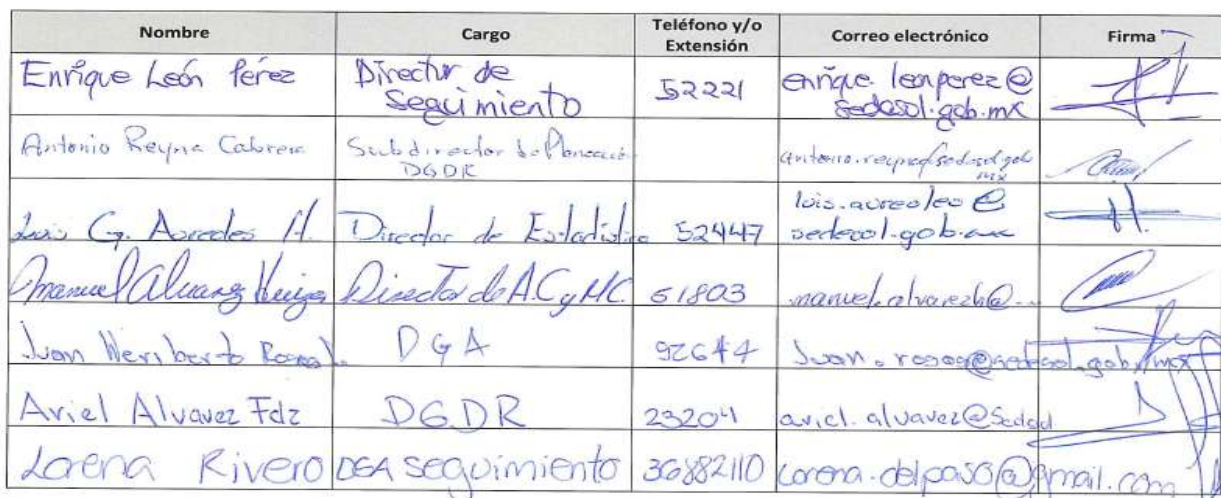 Nombre Cargo Teléfono y/o Extensión Correo electrónico Firma
Enrique León Pérez Director de Seguimiento 52221 enrique.leonperez@sedesol.gob.mx
Antonio Reyna Cabrera Subdirector de Planeación DGDR
Luis G. Director de Estadística 52447 sedesol.gob.mx
Manuel Alvarez Director de A.C y M.C. 51803 manuel.alvarezh@...
Juan Heriberto DGA 92644
Ariel Alvarez Fdz DGDR 23204 ariel.alvarez@Sedesol
Lorena Rivero DGA seguimiento 36882110 lorena.delpaso@gmail.com